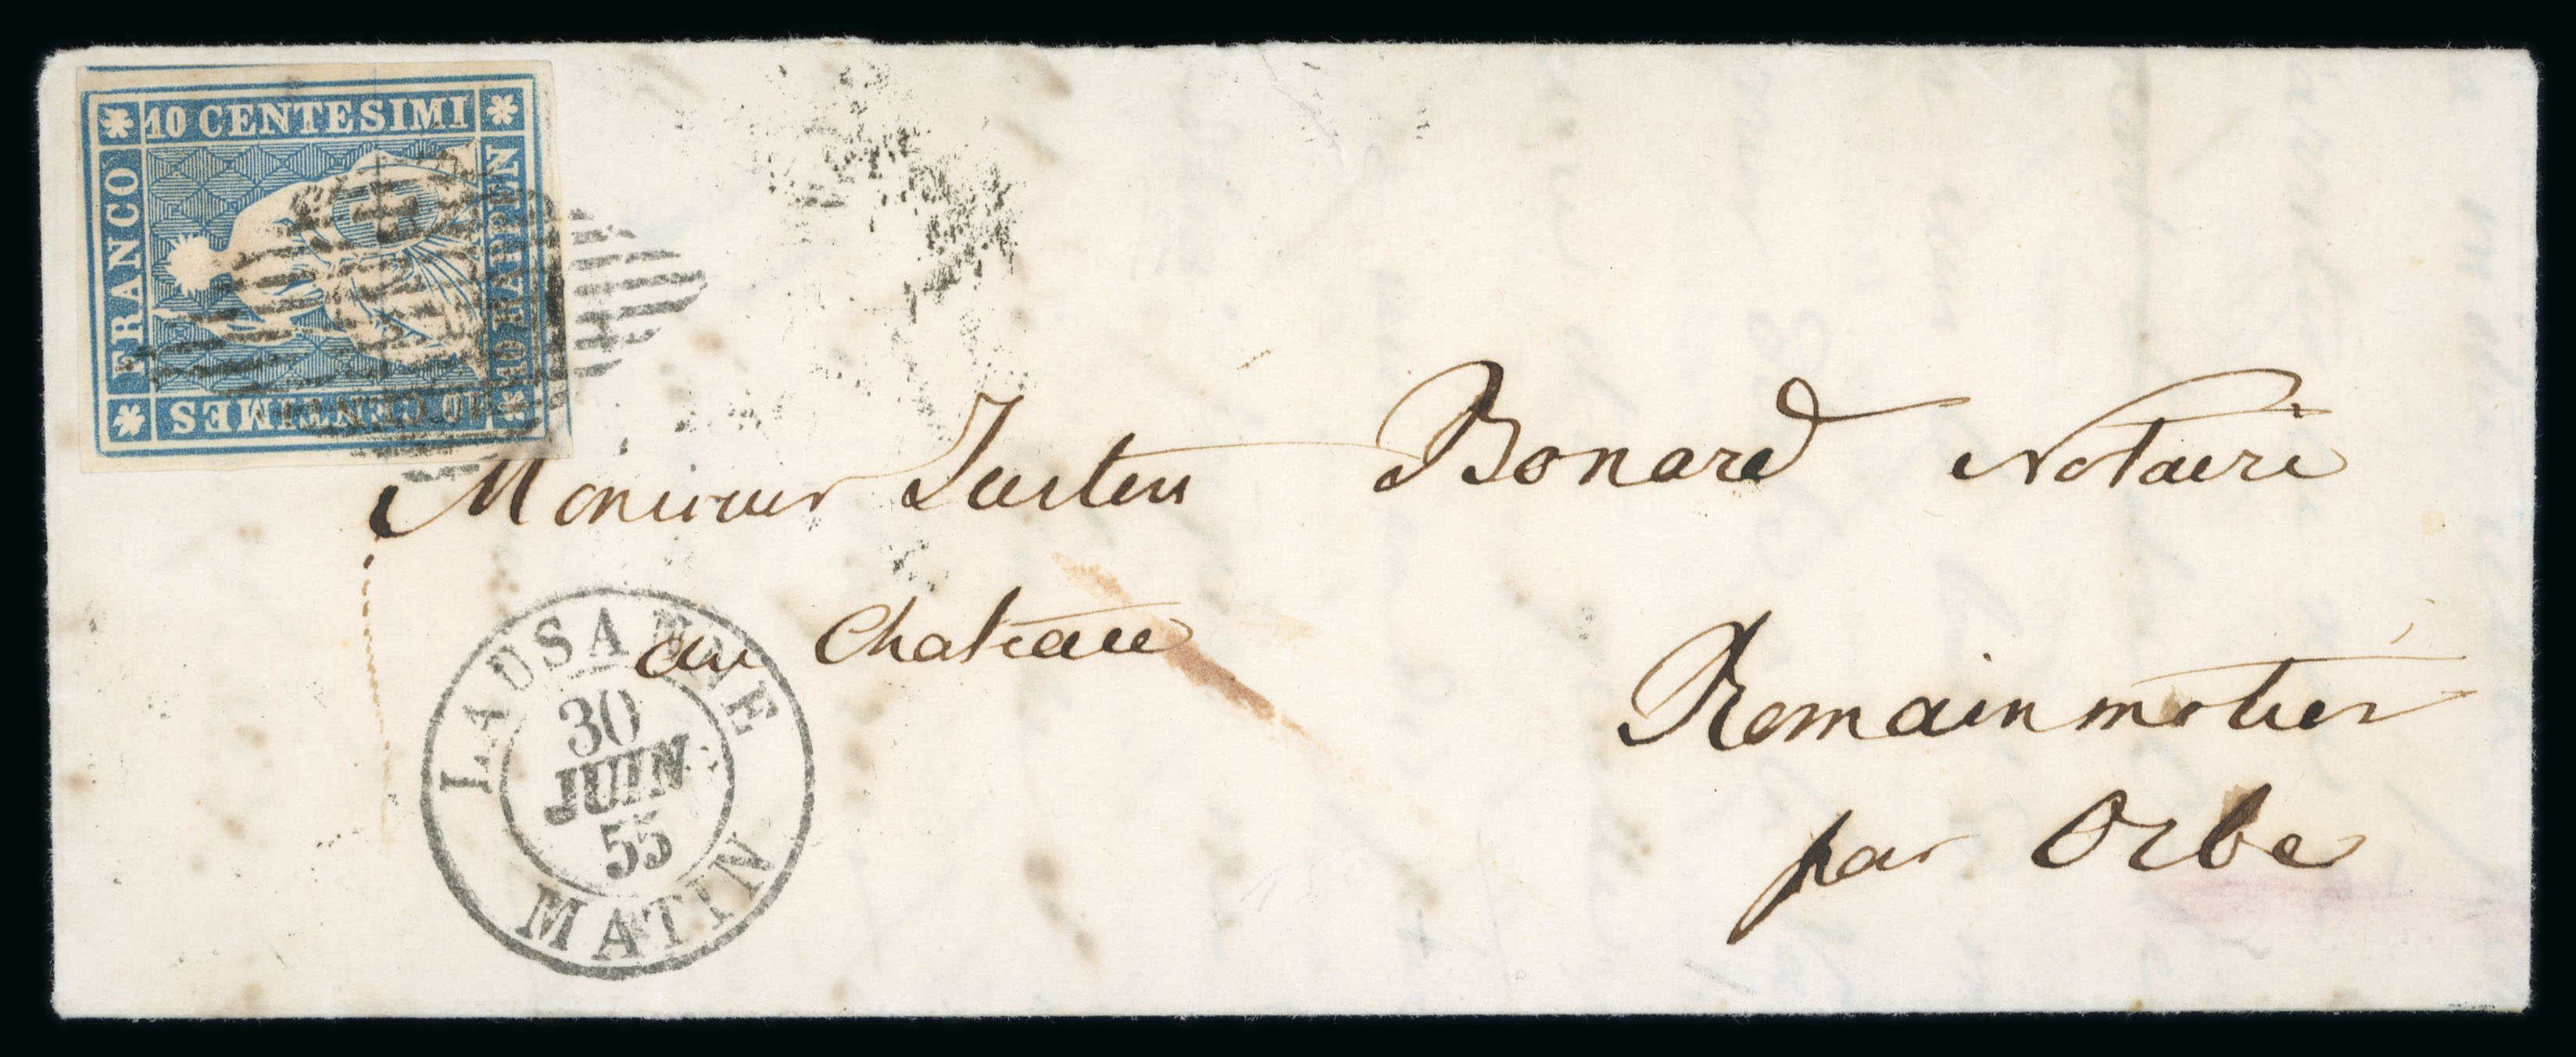 10 CENTESIMI
FRANCO
10 RAPPEN
10 CENTIMES
Monsieur Justin Bonard Notaire
au Chateau
Romainmotier
par Orbe
LAUSANNE
30
JUIN
55
MATIN